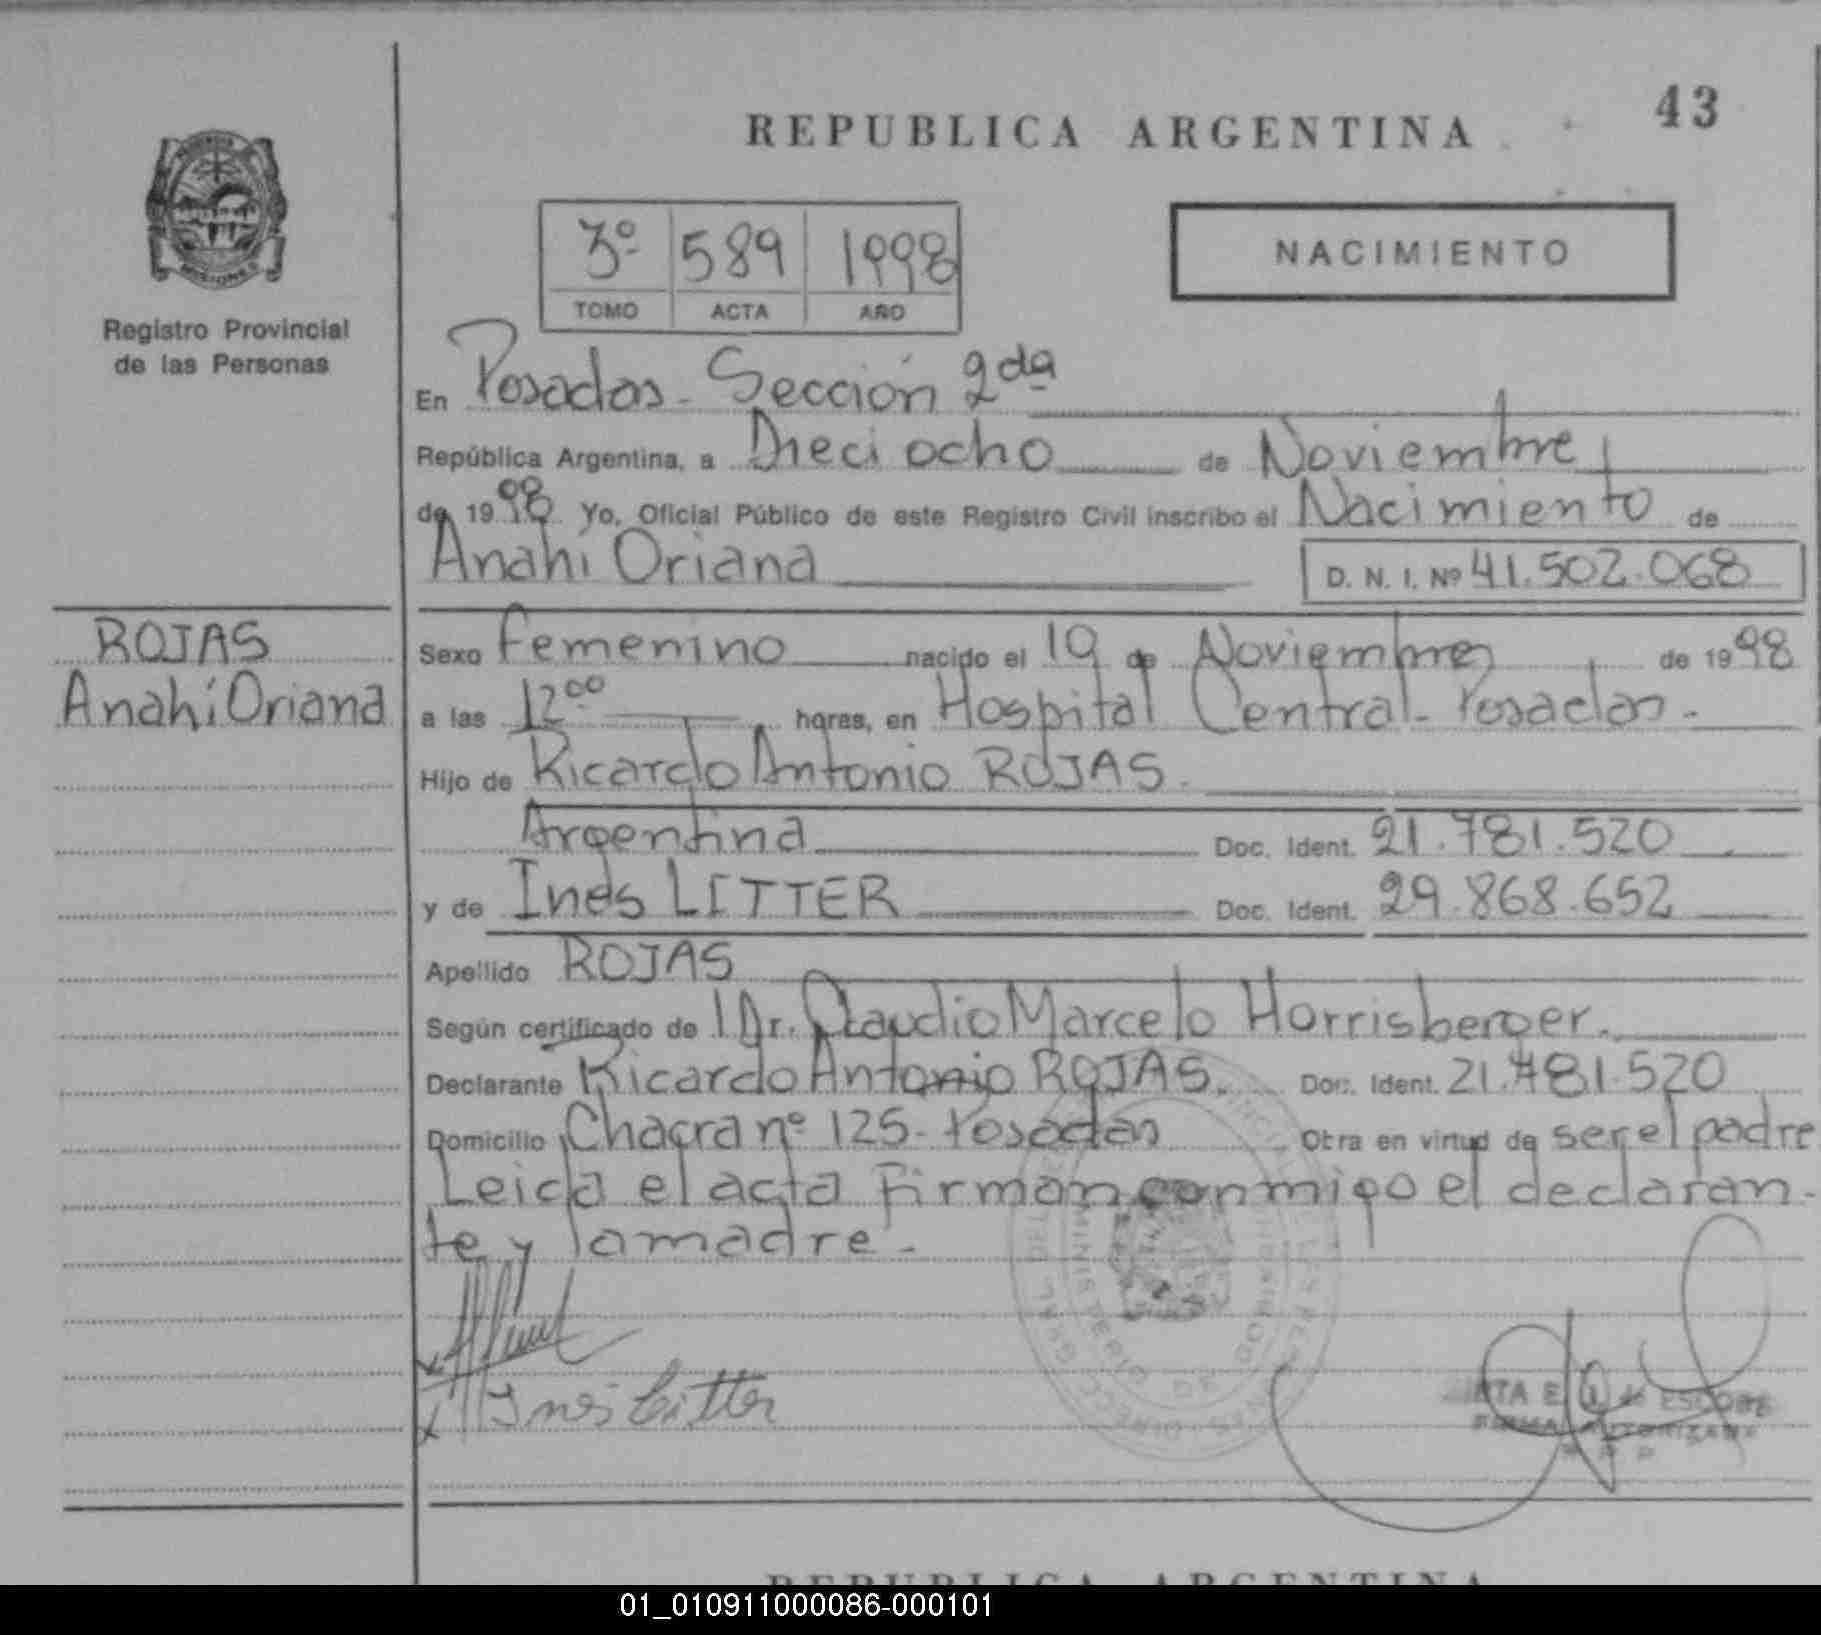 43
REPUBLICA ARGENTINA
MISIONES
Registro Provincial
de las Personas
3º 589 1998
TOMO ACTA AÑO
NACIMIENTO
En Posadas - Sección 2da
República Argentina, a Dieciocho de Noviembre
de 1998 Yo, Oficial Público de este Registro Civil inscribo el Nacimiento de
Anahí Oriana D. N. I. Nº 41.502.068
ROJAS
Anahí Oriana
Sexo Femenino nacido el 10 de Noviembre de 1998
a las 12 00 horas, en Hospital Central - Posadas -
Hijo de Ricardo Antonio ROJAS.
Argentina Doc. Ident. 21.781.520
y de Inés LITTER Doc. Ident. 29.868.652
Apellido ROJAS
Según certificado de Dr. Claudio Marcelo Horrisberger.
Declarante Ricardo Antonio ROJAS. Doc. Ident. 21.781.520
Domicilio Chacra nº 125 - Posadas Obra en virtud de ser el padre
Leida el acta Firman conmigo el declaran-
te y la madre -
Ines Litter
ESCOBE
FIRMA AUTORIZADA
REPUBLICA ARGENTINA
01_010911000086-000101